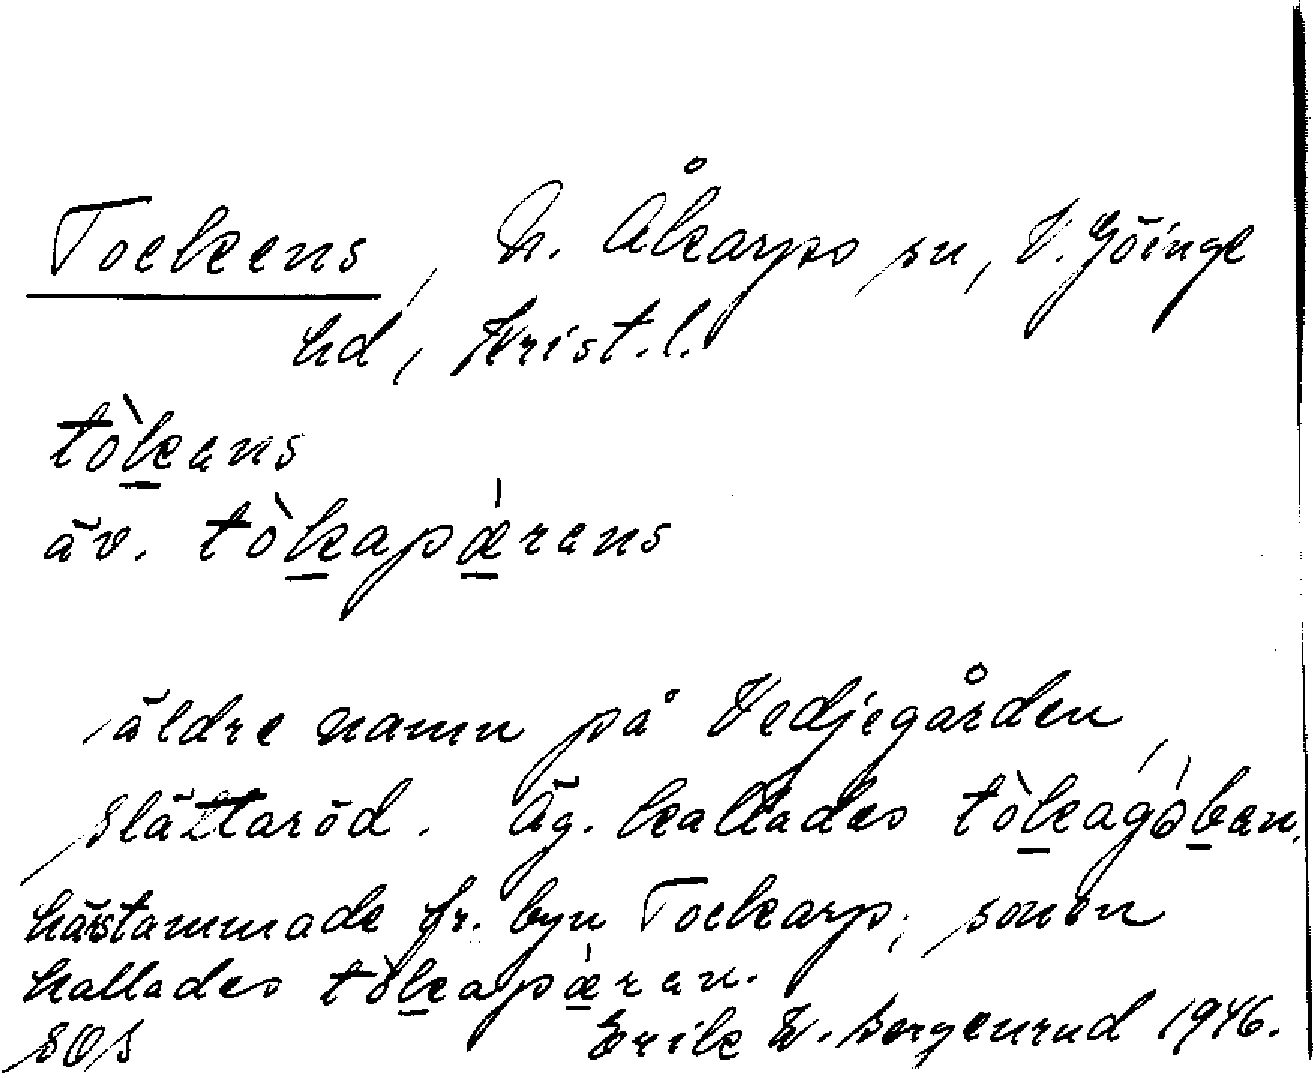 Tockens, N. Åkarps sn, V. Göinge
hd, Krist. l.
tòkans
äv. tòkapǽrans
äldre namn på Vedjegården,
Slättaröd. Äg. kallades tòkagóban,
härstammade fr. byn Tockarp; sonen
kallades tòkapǽran.
SOS Erik W. Sergenrud 1946.